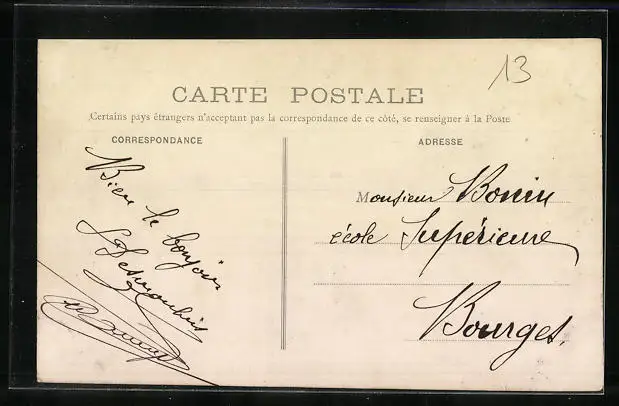 13
CARTE POSTALE
Certains pays étrangers n'acceptant pas la correspondance de ce côté, se renseigner à la Poste
CORRESPONDANCE
Bien le bonjour
ADRESSE
Monsieur Bonin
école Supérieure
Bourges.